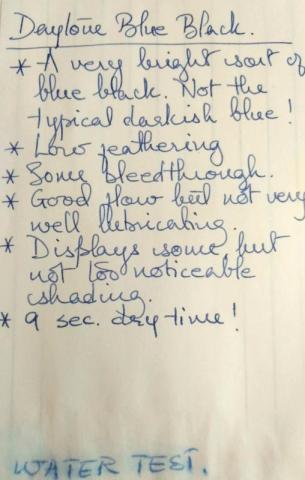 Daytone Blue Black.
* A very bright sort of
blue black. Not the
typical darkish blue!
* Low feathering
* Some bleedthrough.
* Good flow but not very
well lubricating.
* Displays some, but
not too noticeable
shading.
* 9 sec. dry time!
WATER TEST.